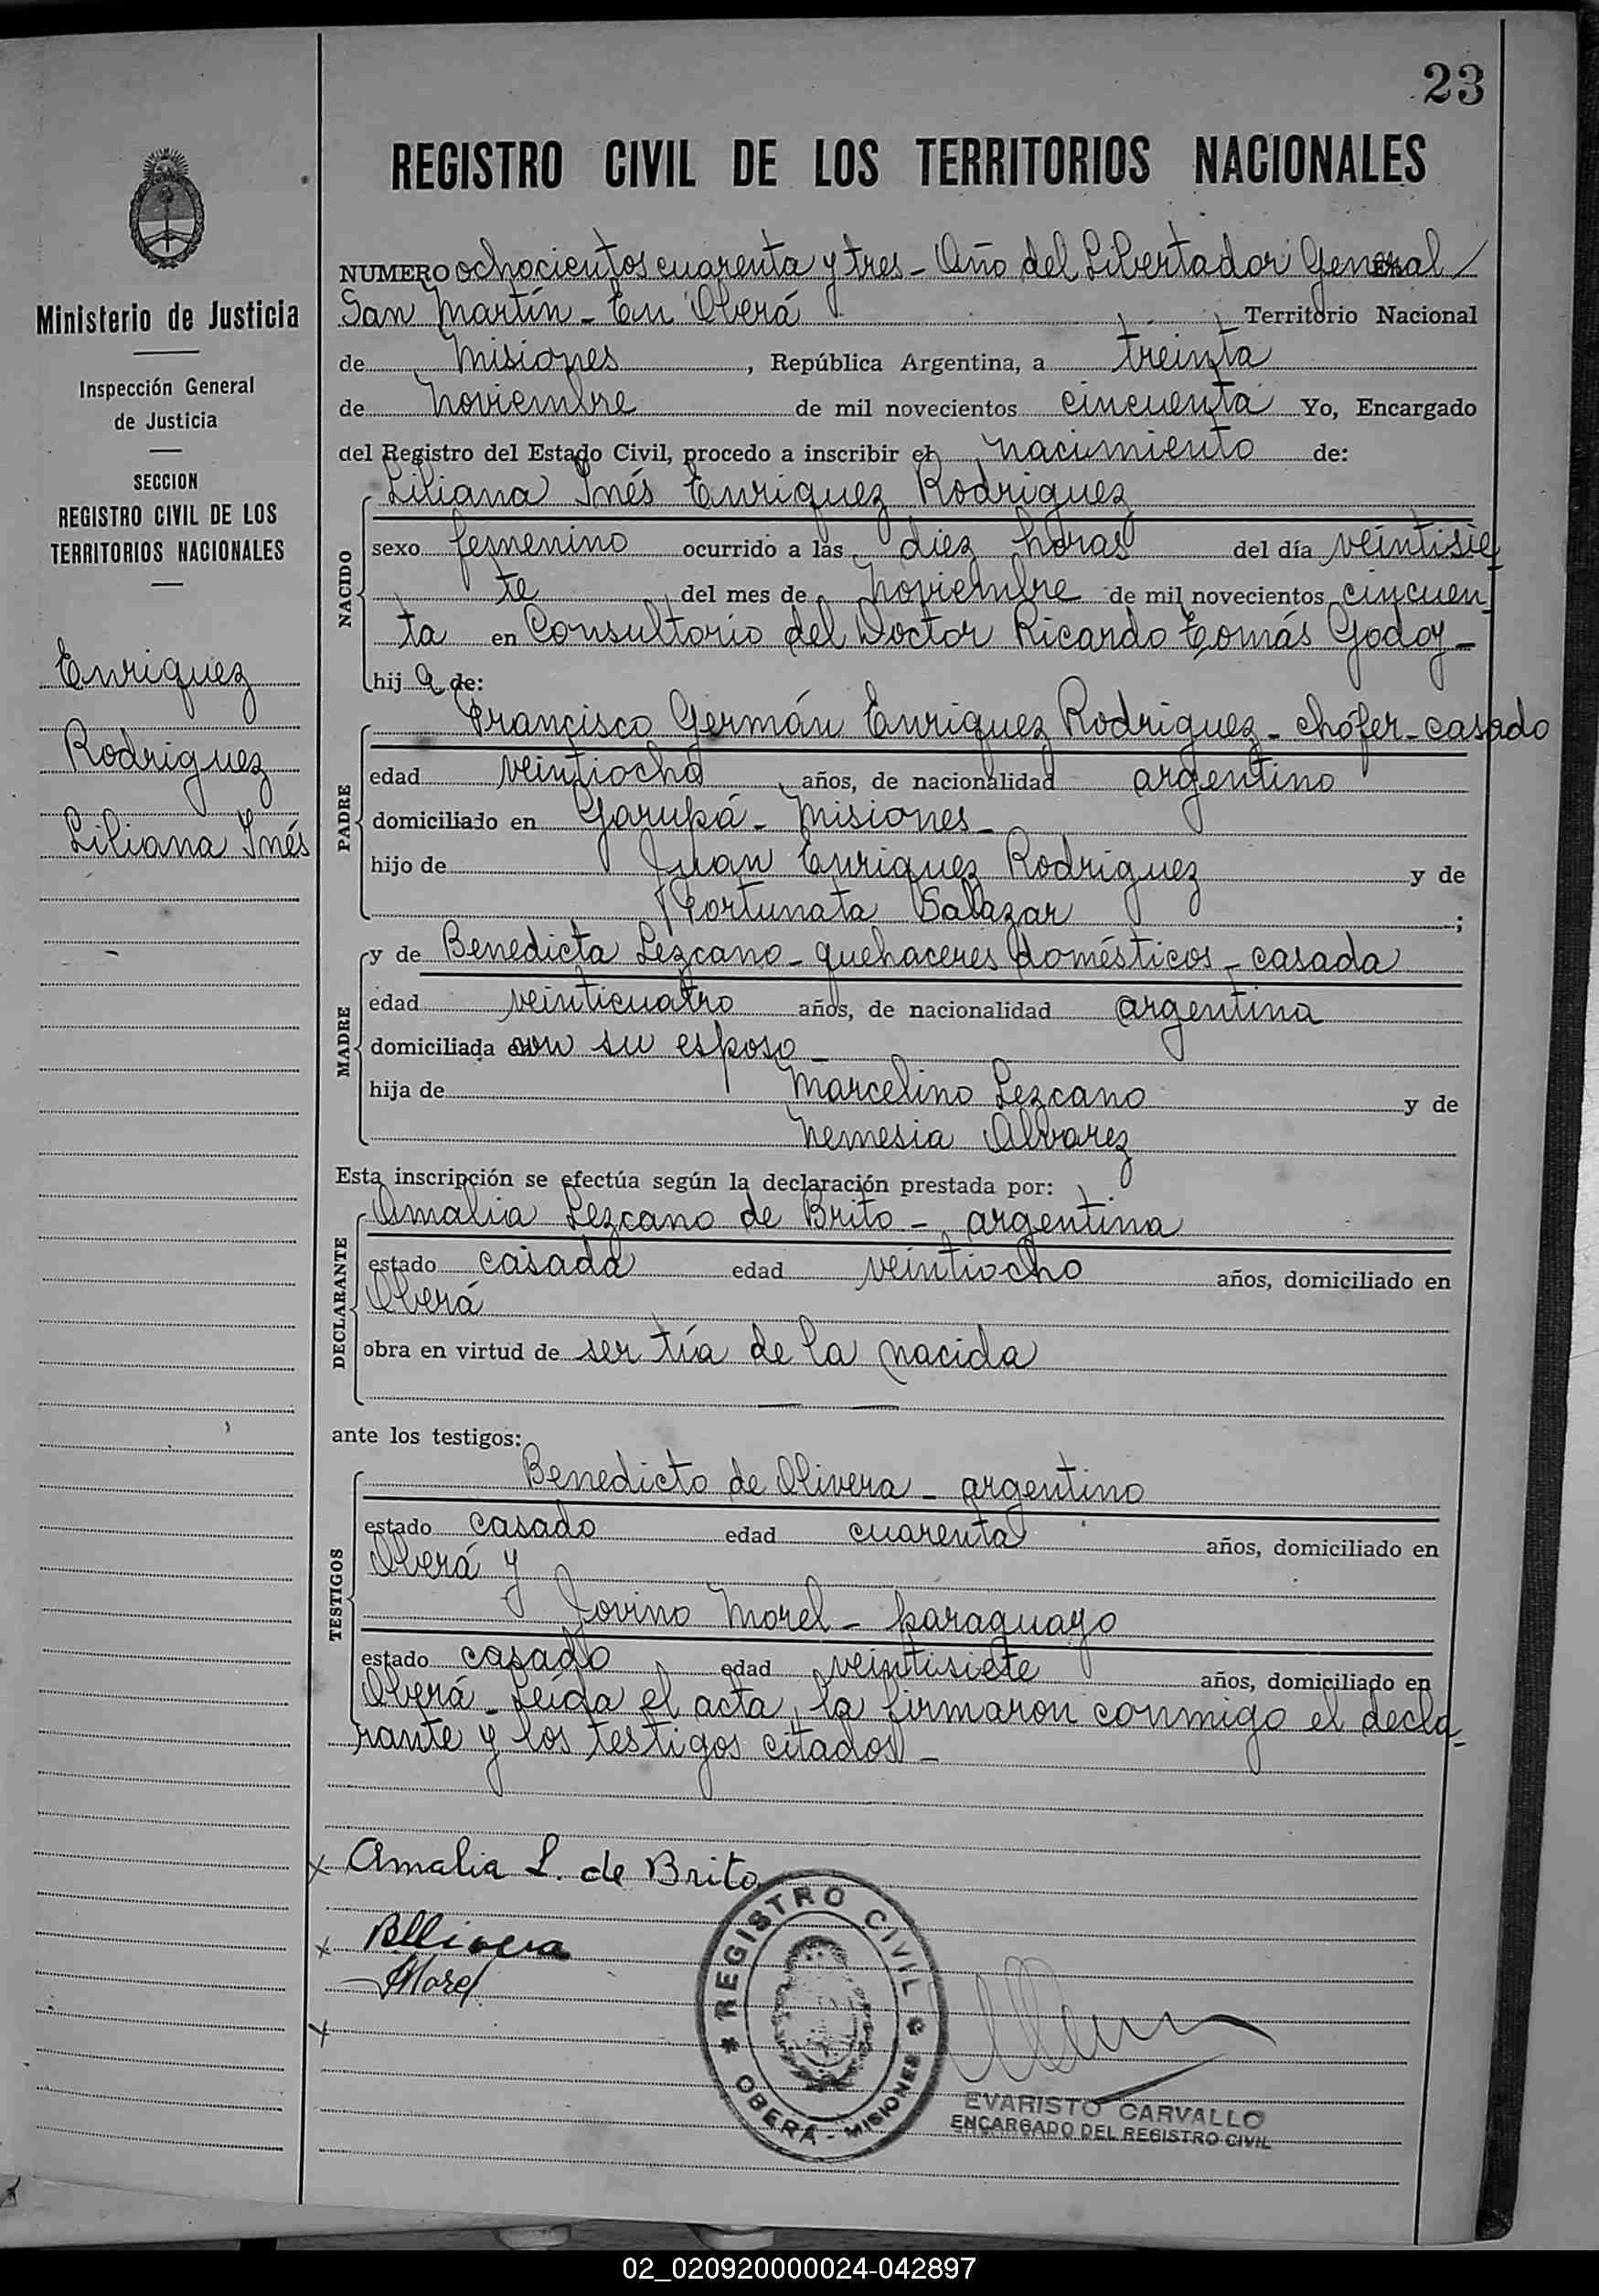 23
REGISTRO CIVIL DE LOS TERRITORIOS NACIONALES
Ministerio de Justicia
Inspección General
de Justicia
SECCION
REGISTRO CIVIL DE LOS
TERRITORIOS NACIONALES
Enriquez
Rodriguez
Liliana Inés
NUMERO ochocientos cuarenta y tres - Año del Libertador General
San Martín - En Oberá Territorio Nacional
de Misiones, República Argentina, a treinta
de Noviembre de mil novecientos cincuenta Yo, Encargado
del Registro del Estado Civil, procedo a inscribir el nacimiento de:
NACIDO
Liliana Inés Enriquez Rodriguez
sexo femenino ocurrido a las diez horas del día veintisie
te del mes de Noviembre de mil novecientos cincuen
ta en Consultorio del Doctor Ricardo Tomás Godoy -
hij a de:
PADRE
Francisco Germán Enriquez Rodriguez - chófer - casado
edad veintiocho años, de nacionalidad argentino
domiciliado en Garupá - Misiones -
hijo de Juan Enriquez Rodriguez y de
Fortunata Salazar ;
MADRE
y de Benedicta Lezcano - quehaceres domésticos - casada
edad veinticuatro años, de nacionalidad argentina
domiciliada con su esposo -
hija de Marcelino Lezcano y de
Nemesia Alvarez
Esta inscripción se efectúa según la declaración prestada por:
DECLARANTE
Amalia Lezcano de Brito - argentina
estado casada edad veintiocho años, domiciliado en
Oberá
obra en virtud de ser tía de la nacida
ante los testigos:
TESTIGOS
Benedicto de Olivera - argentino
estado casado edad cuarenta años, domiciliado en
Oberá y
Jovino Morel - paraguayo
estado casado edad veintisiete años, domiciliado en
Oberá - Leída el acta, la firmaron conmigo el decla-
rante y los testigos citados -
x Amalia L. de Brito
x BOlivera
JMorel
x
REGISTRO CIVIL
OBERÁ - MISIONES
EVARISTO CARVALLO
ENCARGADO DEL REGISTRO CIVIL
02_020920000024-042897